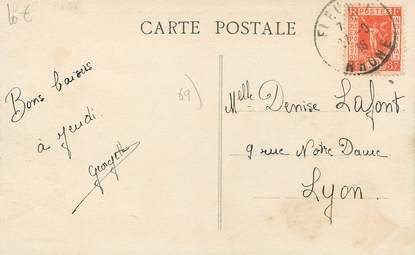 10€
CARTE POSTALE
FLEURIE
RHONE
69)
Bons baisers
à jeudi
Georgette
Melle Denise Lafont
9 rue Notre Dame
Lyon.